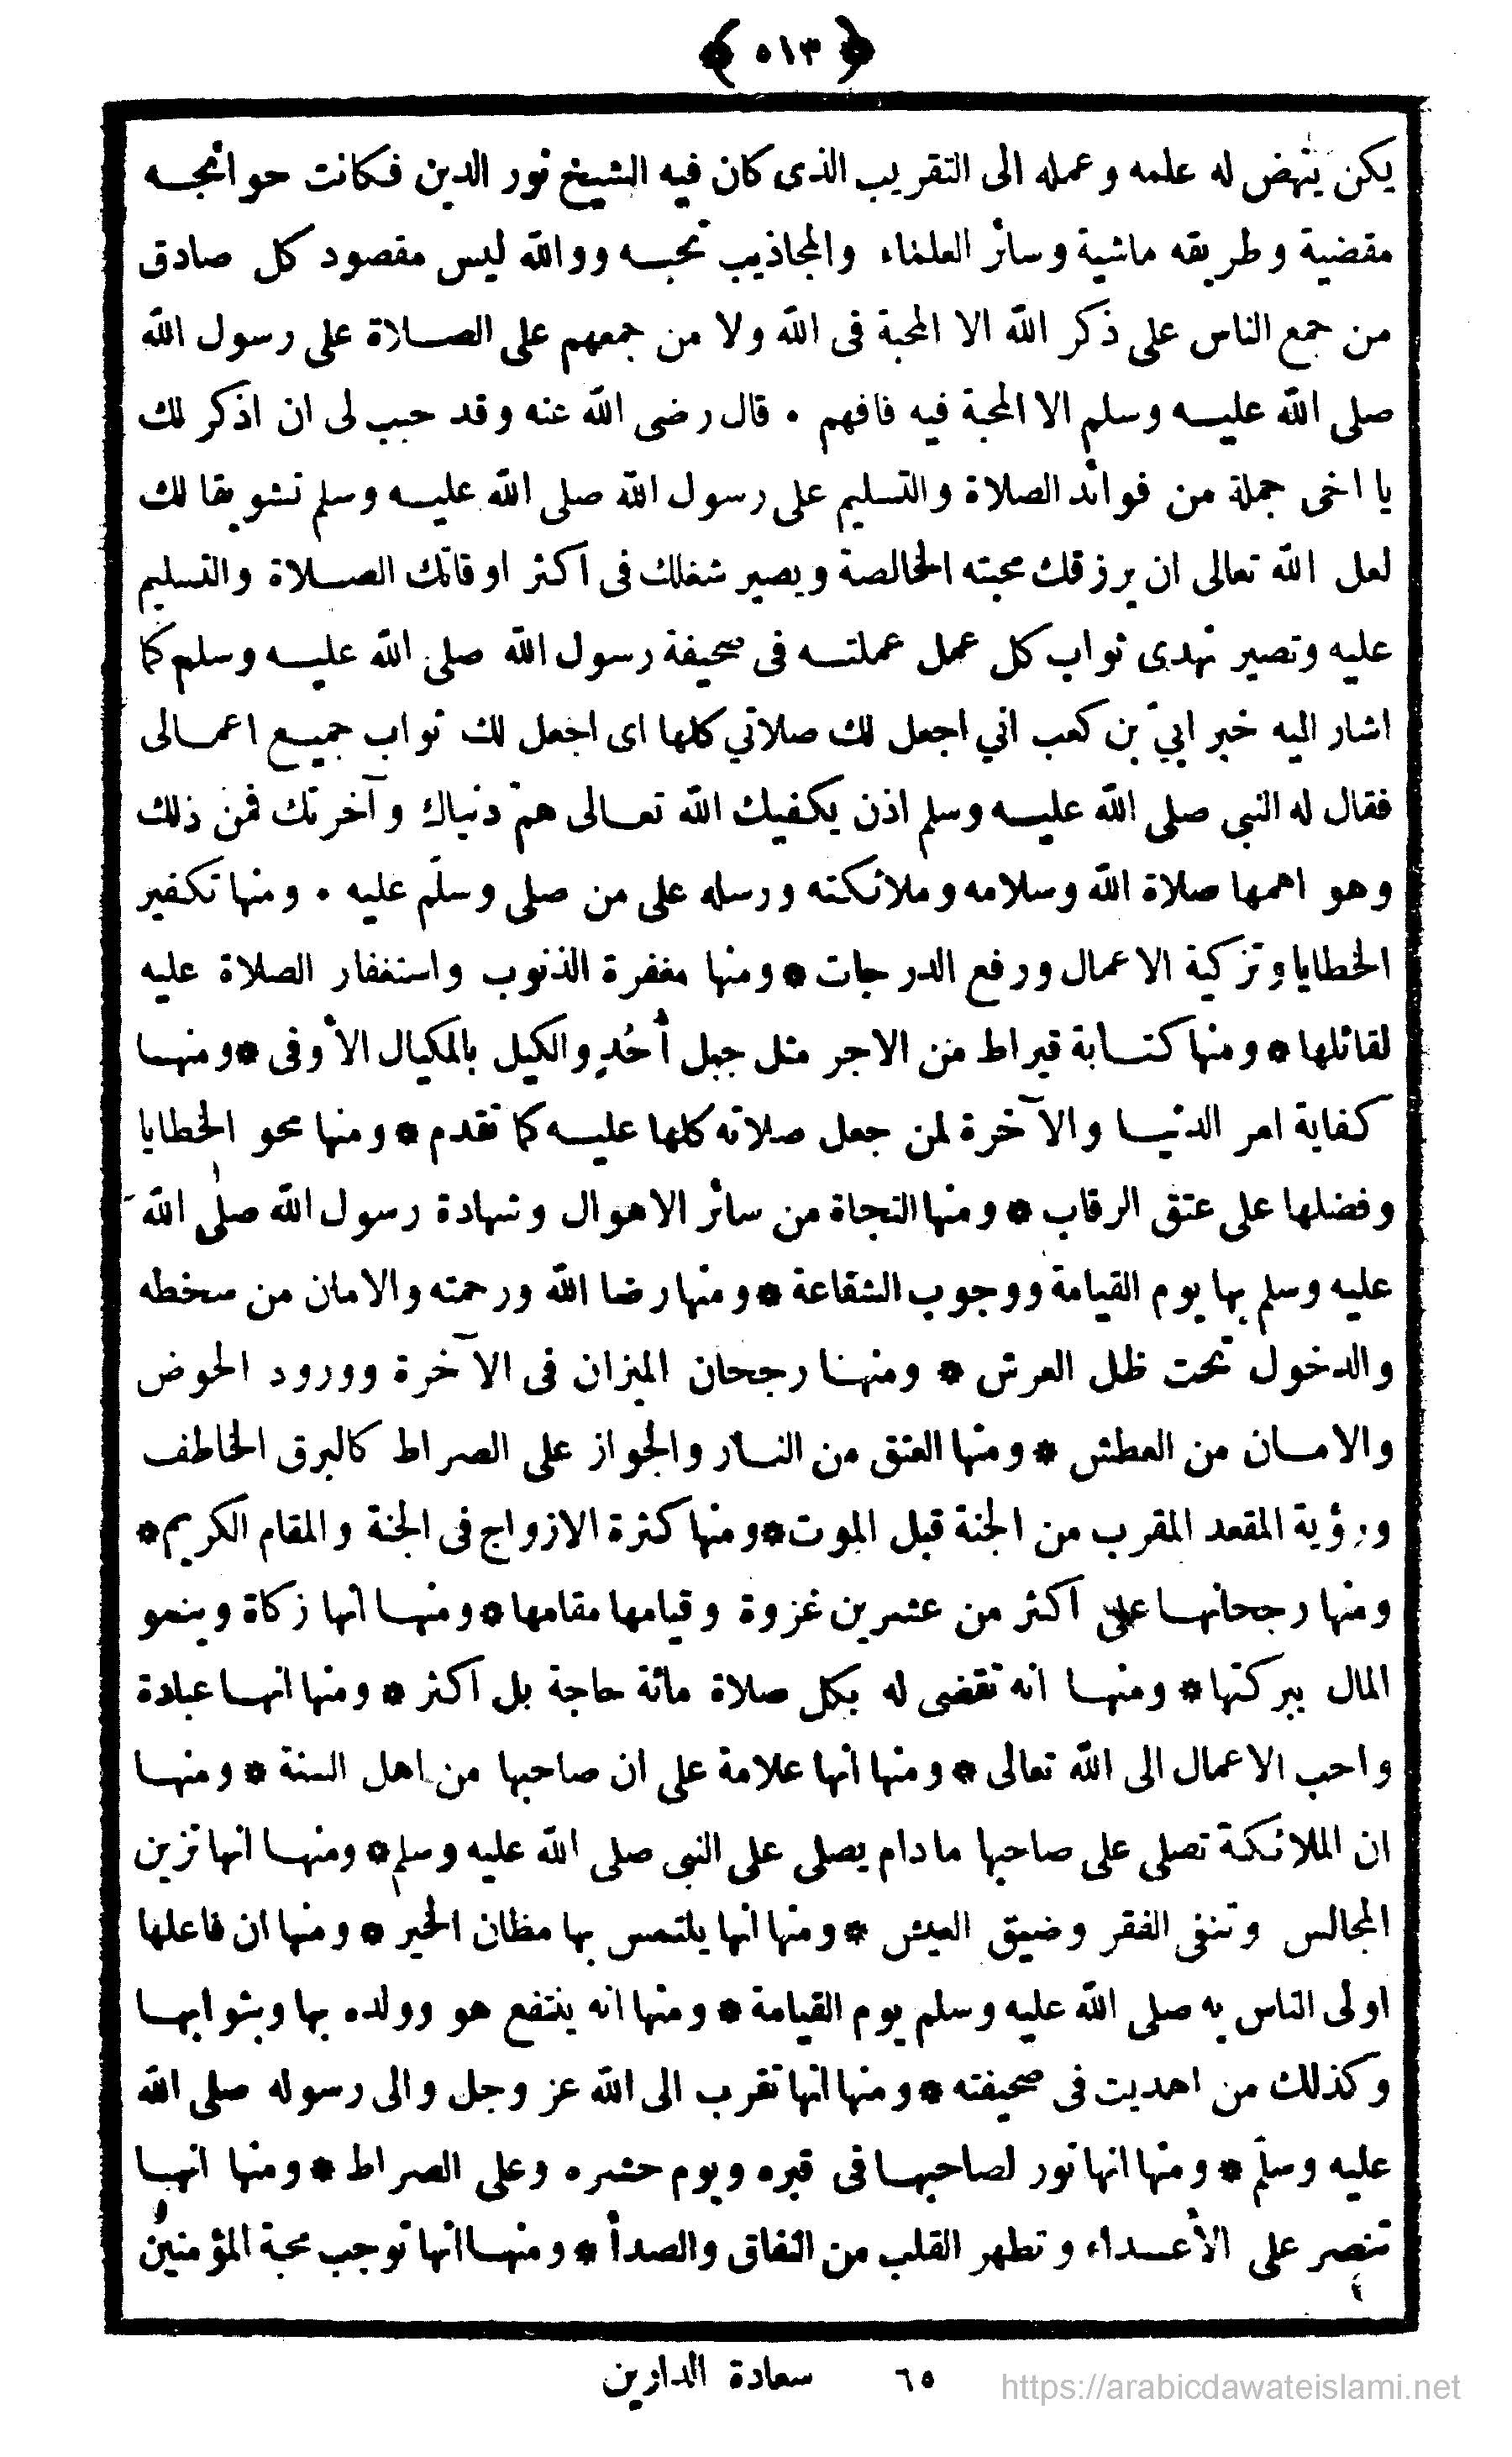 ﴿ ٥١٣ ﴾
يكن ينهض له علمه وعمله الى التقريب الذى كان فيه الشيخ نور الدين فكانت حوائجه
مقضية وطريقه ماشية وسائر العلماء والمجاذيب تحبه ووالله ليس مقصود كل صادق
من جمع الناس على ذكر الله الا المحبة فى الله ولا من جمعهم على الصلاة على رسول الله
صلى الله عليه وسلم الا المحبة فيه فافهم • قال رضى الله عنه وقد حبب لى ان اذكر لك
يا اخى جملة من فوائد الصلاة والتسليم على رسول الله صلى الله عليه وسلم تشويقا لك
لعل الله تعالى ان يرزقك محبته الخالصة ويصير شغلك فى اكثر اوقاتك الصلاة والتسليم
عليه وتصير تهدى ثواب كل عمل عملته فى صحيفة رسول الله صلى الله عليه وسلم كما
اشار اليه خبر ابيّ بن كعب اني اجعل لك صلاتي كلها اى اجعل لك ثواب جميع اعمالى
فقال له النبى صلى الله عليه وسلم اذن يكفيك الله تعالى همّ دنياك وآخرتك فمن ذلك
وهو اهمها صلاة الله وسلامه وملائكته ورسله على من صلى وسلّم عليه • ومنها تكفير
الخطايا وتزكية الاعمال ورفع الدرجات * ومنها مغفرة الذنوب واستغفار الصلاة عليه
لقائلها * ومنها كتابة قيراط من الاجر مثل جبل أُحُدٍ والكيل بالمكيال الأوفى * ومنها
كفاية امر الدنيا والآخرة لمن جعل صلاته كلها عليه كما تقدم * ومنها محو الخطايا
وفضلها على عتق الرقاب * ومنها النجاة من سائر الاهوال وشهادة رسول الله صلى الله
عليه وسلم بها يوم القيامة ووجوب الشفاعة * ومنها رضا الله ورحمته والامان من سخطه
والدخول تحت ظل العرش * ومنها رجحان الميزان فى الآخرة وورود الحوض
والامان من العطش * ومنها العتق من النار والجواز على الصراط كالبرق الخاطف
ورؤية المقعد المقرب من الجنة قبل الموت * ومنها كثرة الازواج فى الجنة والمقام الكريم *
ومنها رجحانها على اكثر من عشرين غزوة وقيامها مقامها * ومنها أنها زكاة وينمو
المال ببركتها * ومنها انه تقضى له بكل صلاة مائة حاجة بل اكثر * ومنها انها عبادة
واحب الاعمال الى الله تعالى * ومنها أنها علامة على ان صاحبها من اهل السنة * ومنها
ان الملائكة تصلى على صاحبها ما دام يصلى على النبى صلى الله عليه وسلم * ومنها انها تزين
المجالس وتنفى الفقر وضيق العيش * ومنها انها يلتمس بها مظان الخير * ومنها ان فاعلها
اولى الناس به صلى الله عليه وسلم يوم القيامة * ومنها انه ينتفع هو وولده بها وبثوابها
وكذلك من اهديت فى صحيفته * ومنها انها تقرب الى الله عز وجل والى رسوله صلى الله
عليه وسلّم * ومنها انها نور لصاحبها فى قبره ويوم حشره وعلى الصراط * ومنها انها
تنصر على الأعداء وتطهر القلب من النفاق والصدأ * ومنها انها توجب محبة المؤمنين
٦٥ سعادة الدارين
https://arabicdawateislami.net